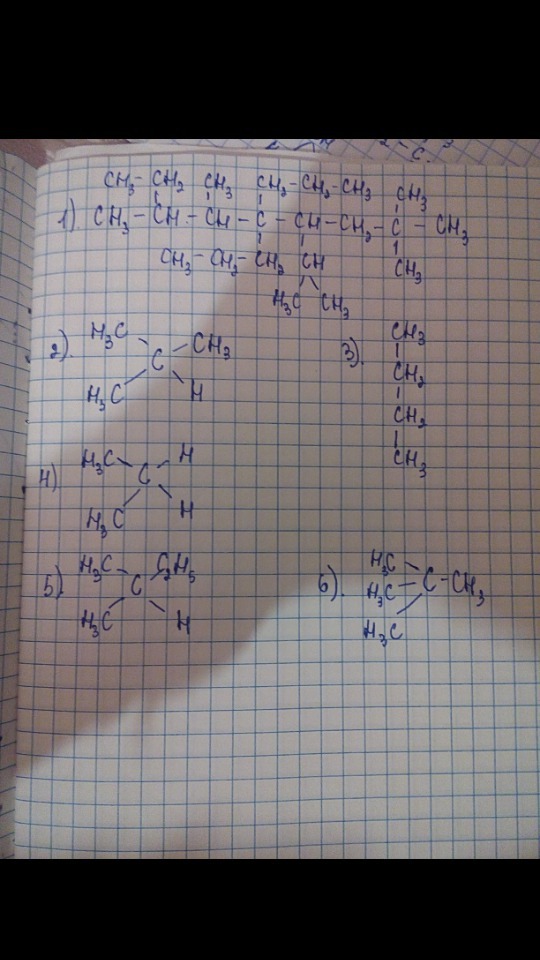 CH3-CH2 CH3 CH2-CH2-CH3 CH3
1) CH3-CH-CH-C-CH-CH2-C-CH3
CH3-CH2-CH2 CH CH3
H3C CH3
2). H3C CH3
C
H3C H
3). CH3
CH2
CH2
CH3
4) H3C H
C
H3C H
5) H3C C2H5
C
H3C H
6). H3C
H3C C-CH3
H3C